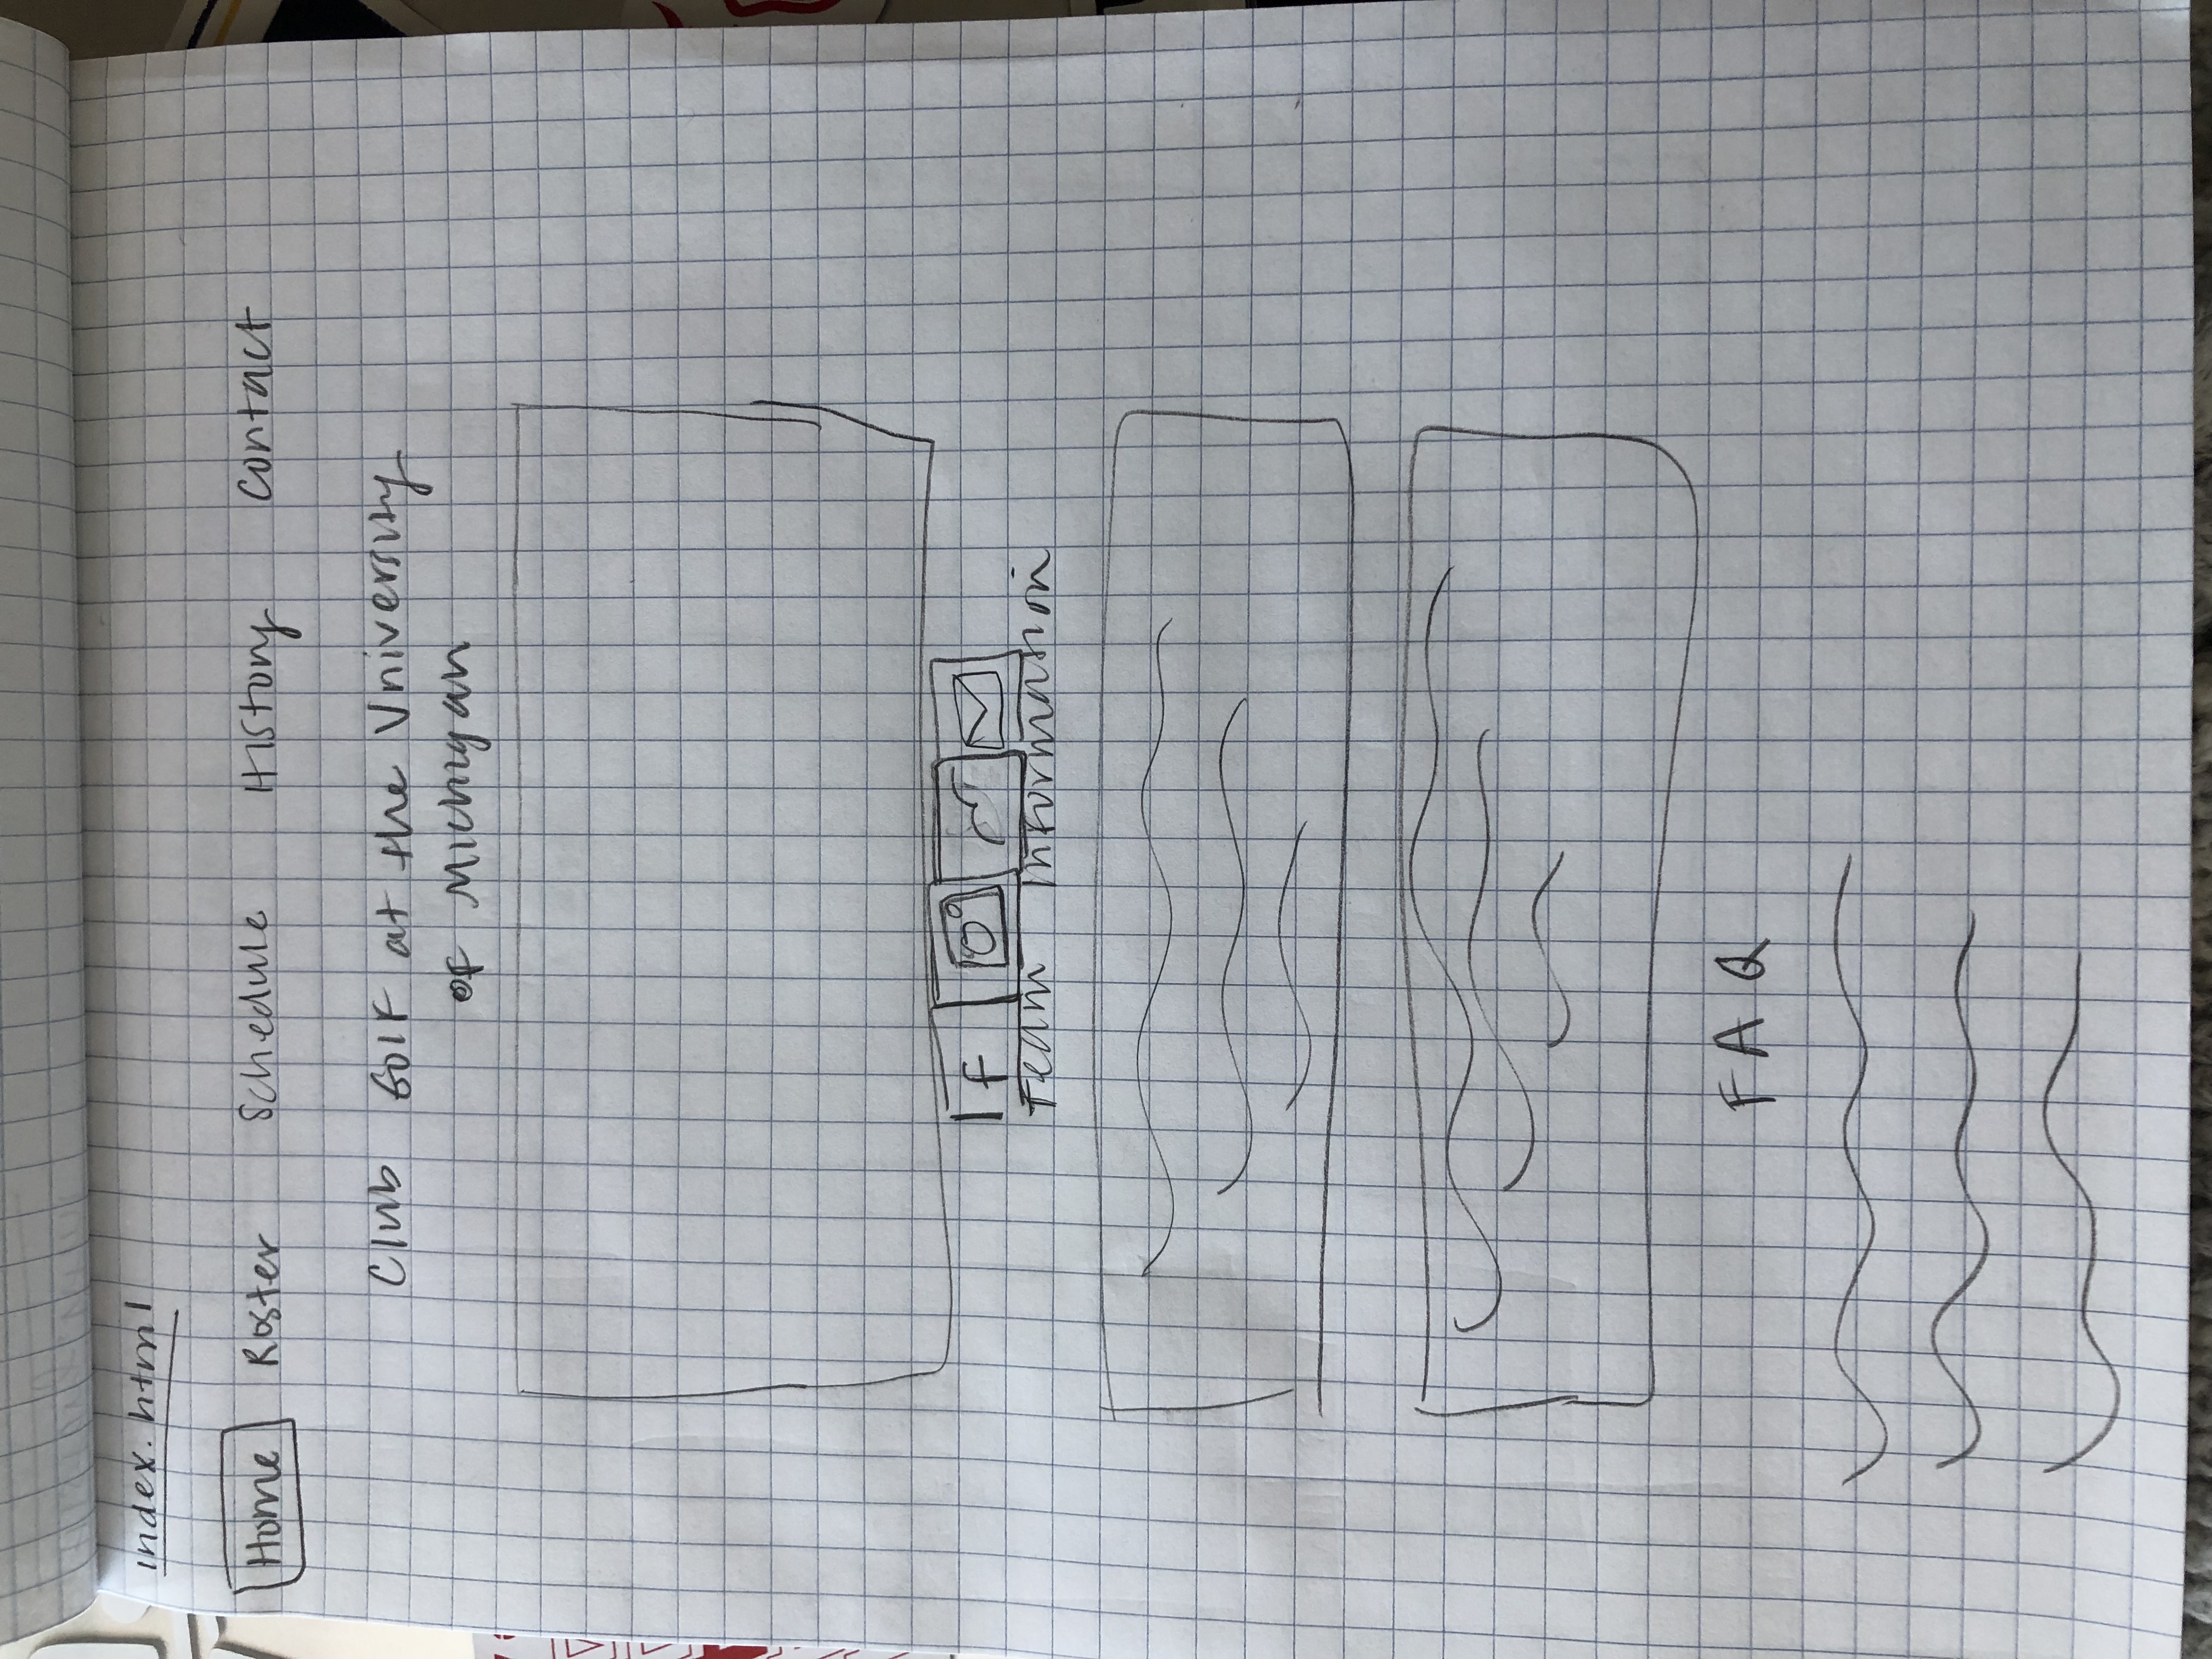 index.html
Home Roster Schedule History Contact
Club Golf at the University
of Michigan
f
Team Information
FAQ